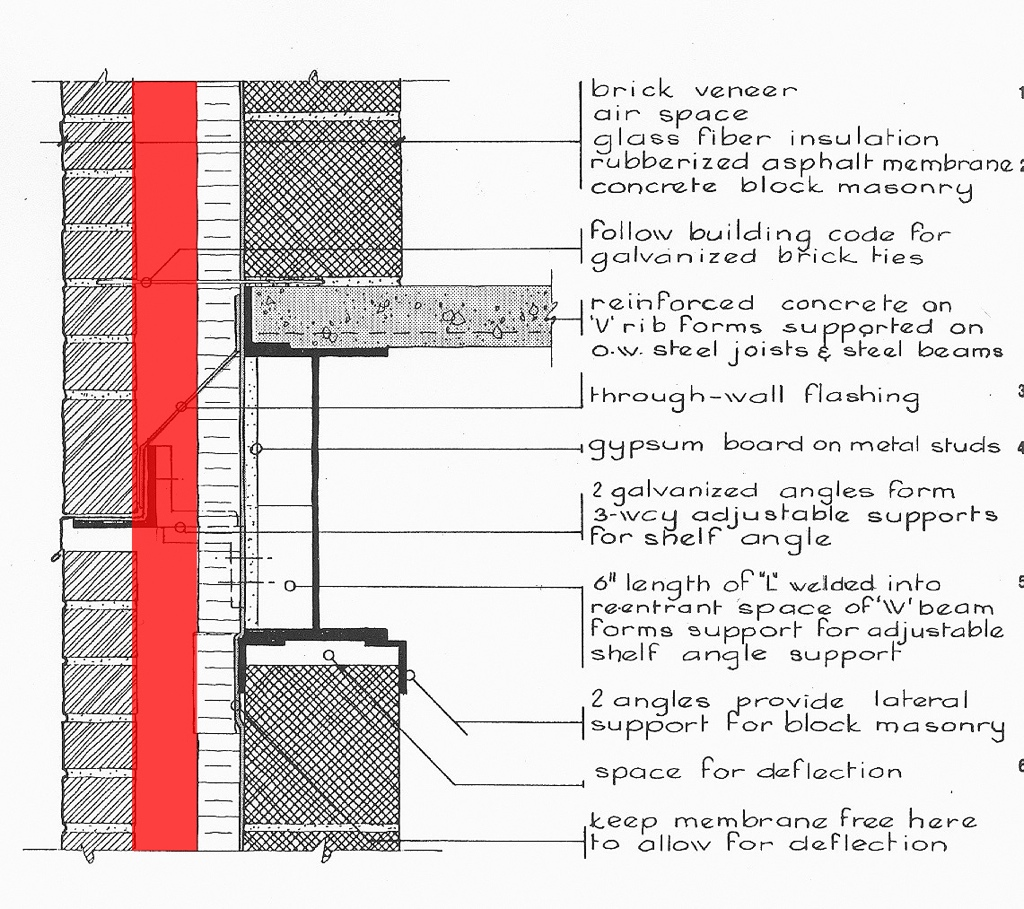 brick veneer
1
air space
glass fiber insulation
rubberized asphalt membrane 2
concrete block masonry
follow building code for
galvanized brick ties
reinforced concrete on
'V' rib forms supported on
o.w. steel joists & steel beams
through-wall flashing
3
gypsum board on metal studs 4
2 galvanized angles form
3-way adjustable supports
for shelf angle
6" length of "L" welded into
5
reentrant space of 'W' beam
forms support for adjustable
shelf angle support
2 angles provide lateral
support for block masonry
space for deflection
6
keep membrane free here
to allow for deflection